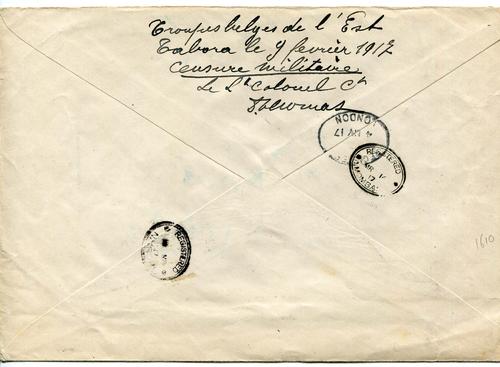 Troupes belges de l'Est
Tabora le 9 février 1917
Censure militaire
Le Lt Colonel Ct
Thomas
LONDON
MY 17
REGISTERED
REGISTERED
1610